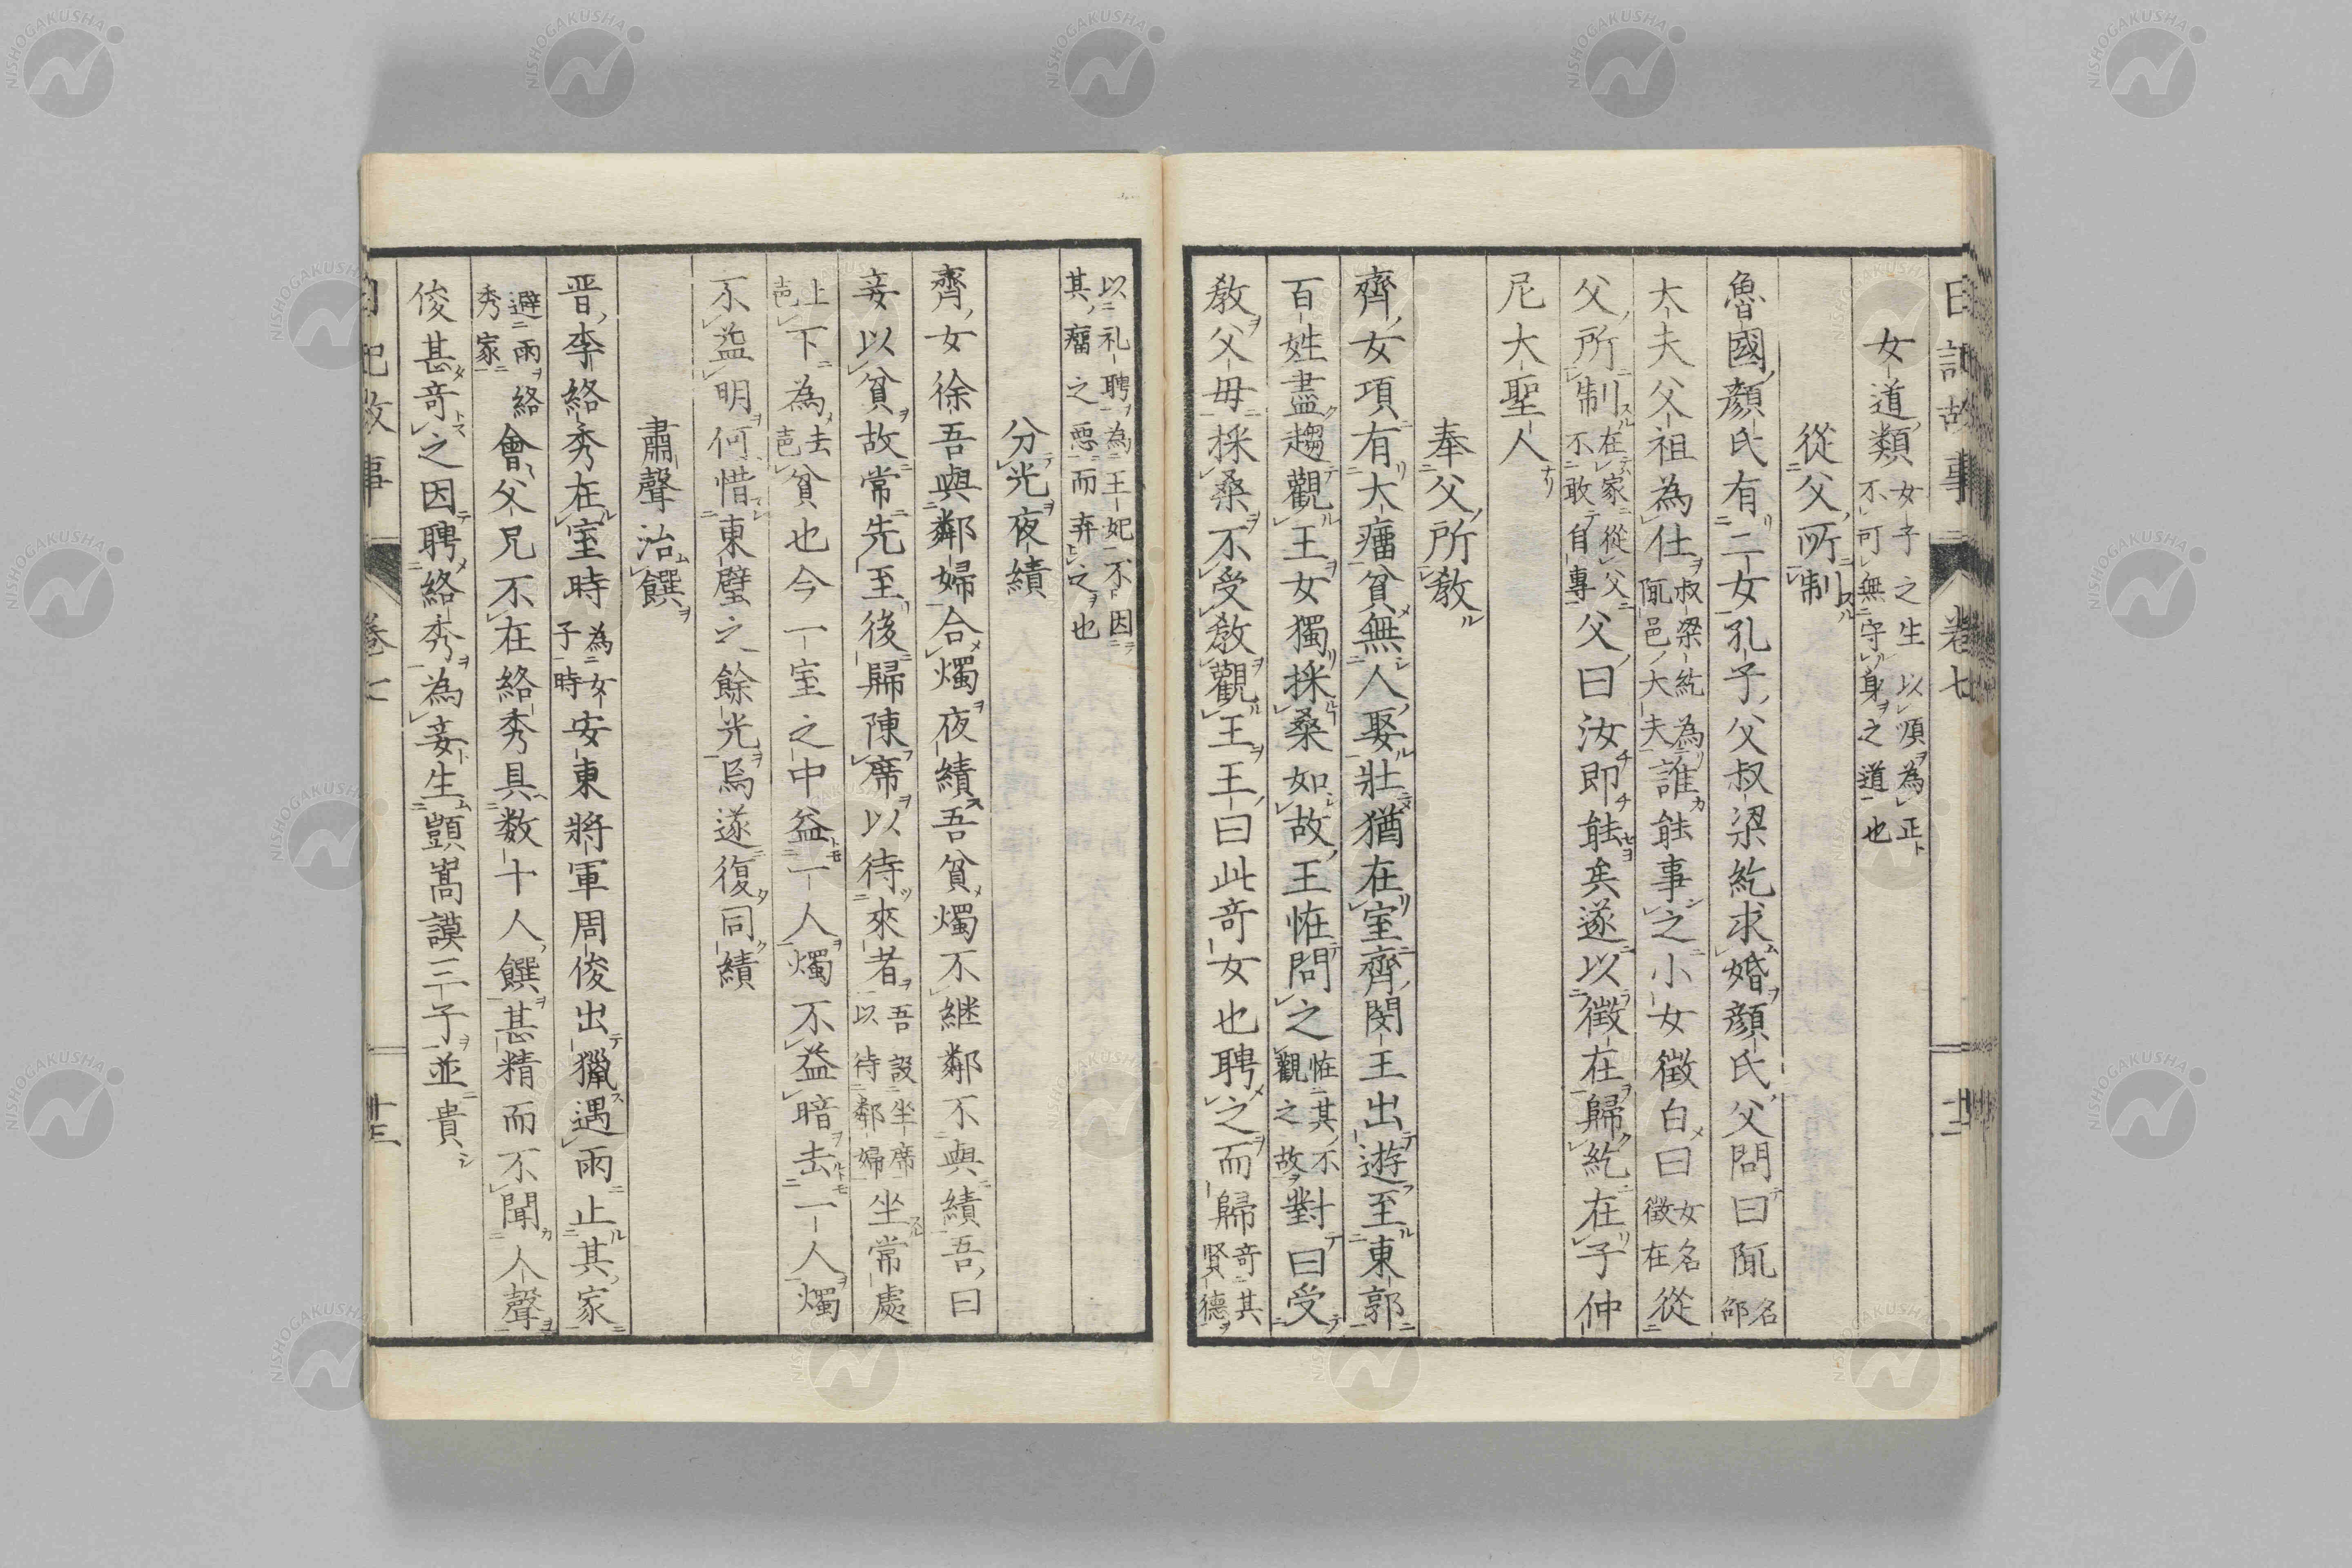 日記故事 卷七 十二
女道類 女子之生以順為正不可無守身之道也
從父所制
魯國顔氏有二女孔子父叔梁紇求婚顔氏父問曰陬名邻
大夫父祖為仕叔梁紇為陬邑大夫誰能事之小女徵白曰女名徵在從
父所制在家從父不敢自專父曰汝即能矣遂以徵在歸紇在子仲
尼大聖人
奉父所敎
齊女項有大瘤貧無人娶壯猶在室齊閔王出遊至東郭
百姓盡趨觀王女獨採桑如故王怪問之怪其不觀之故對曰受
敎父母採桑不受敎觀王王曰此奇女也聘之而歸奇其賢德
以礼聘為王妃不因其瘤之悪而弃之也
分光夜績
齊女徐吾與鄰婦合燭夜績吾貧燭不継鄰不與績吾曰
妾以貧故常先至後歸陳席以待來者吾設坐席以待鄰婦坐常處
下為去声貧也今一室之中益一人燭不益暗去一人燭
不益明何惜東壁之餘光烏遂復同績
肅聲治饌
晋李絡秀在室時為女子時安東將軍周俊出獵遇雨止其家
避雨絡秀家會父兄不在絡秀具数十人饌甚精而不聞人聲
俊甚奇之因聘絡秀為妾生顗嵩謨三子並貴
日記故事 卷七 十三
NISHOGAKUSHA